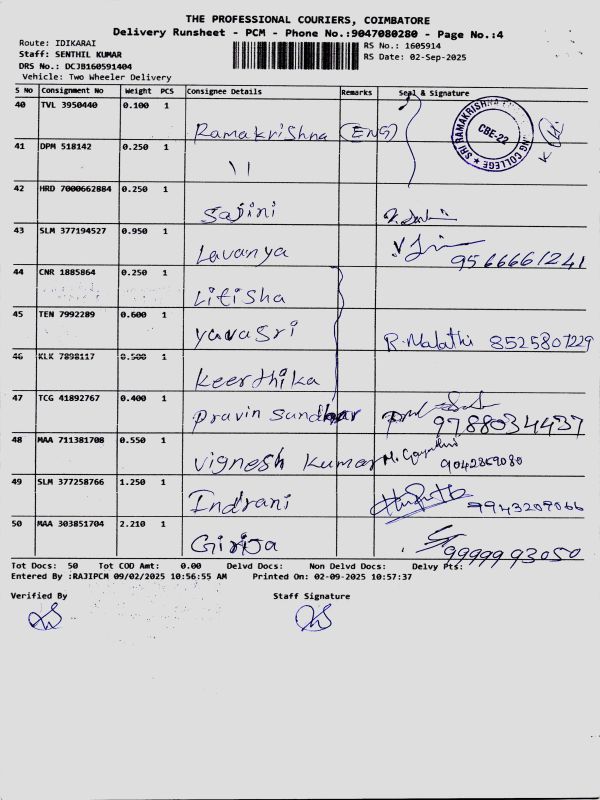 THE PROFESSIONAL COURIERS, COIMBATORE
Delivery Runsheet - PCM - Phone No.:9047080280 - Page No.:4
Route: IDIKARAI
RS No.: 1605914
Staff: SENTHIL KUMAR
RS Date: 02-Sep-2025
DRS No.: DCJB160591404
Vehicle: Two Wheeler Delivery
S No Consignment No Weight PCS Consignee Details Remarks Seal & Signature
40 TVL 3950440 0.100 1
Ramakrishna (ENG)
SRI RAMAKRISHNA ENG COLLEGE ★ CBE-22
41 DPM 518142 0.250 1
11
42 HRD 7000662884 0.250 1
Sajini
43 SLM 377194527 0.950 1
Lavanya 9566661241
44 CNR 1885864 0.250 1
Litisha
45 TEN 7992289 0.600 1
Yavasri R. Malathi 8525807229
46 KLK 7898117 0.500 1
Keerthika
47 TCG 41892767 0.400 1
Pravin Sundhar 9788034437
48 MAA 711381708 0.550 1
Vignesh Kumar M. Gayathri 9042869080
49 SLM 377258766 1.250 1
Indrani 9943209066
50 MAA 303851704 2.210 1
Girija 9999993050
Tot Docs: 50 Tot COD Amt: 0.00 Delvd Docs: Non Delvd Docs: Delvy Pts:
Entered By :RAJIPCM 09/02/2025 10:56:55 AM Printed On: 02-09-2025 10:57:37
Verified By Staff Signature